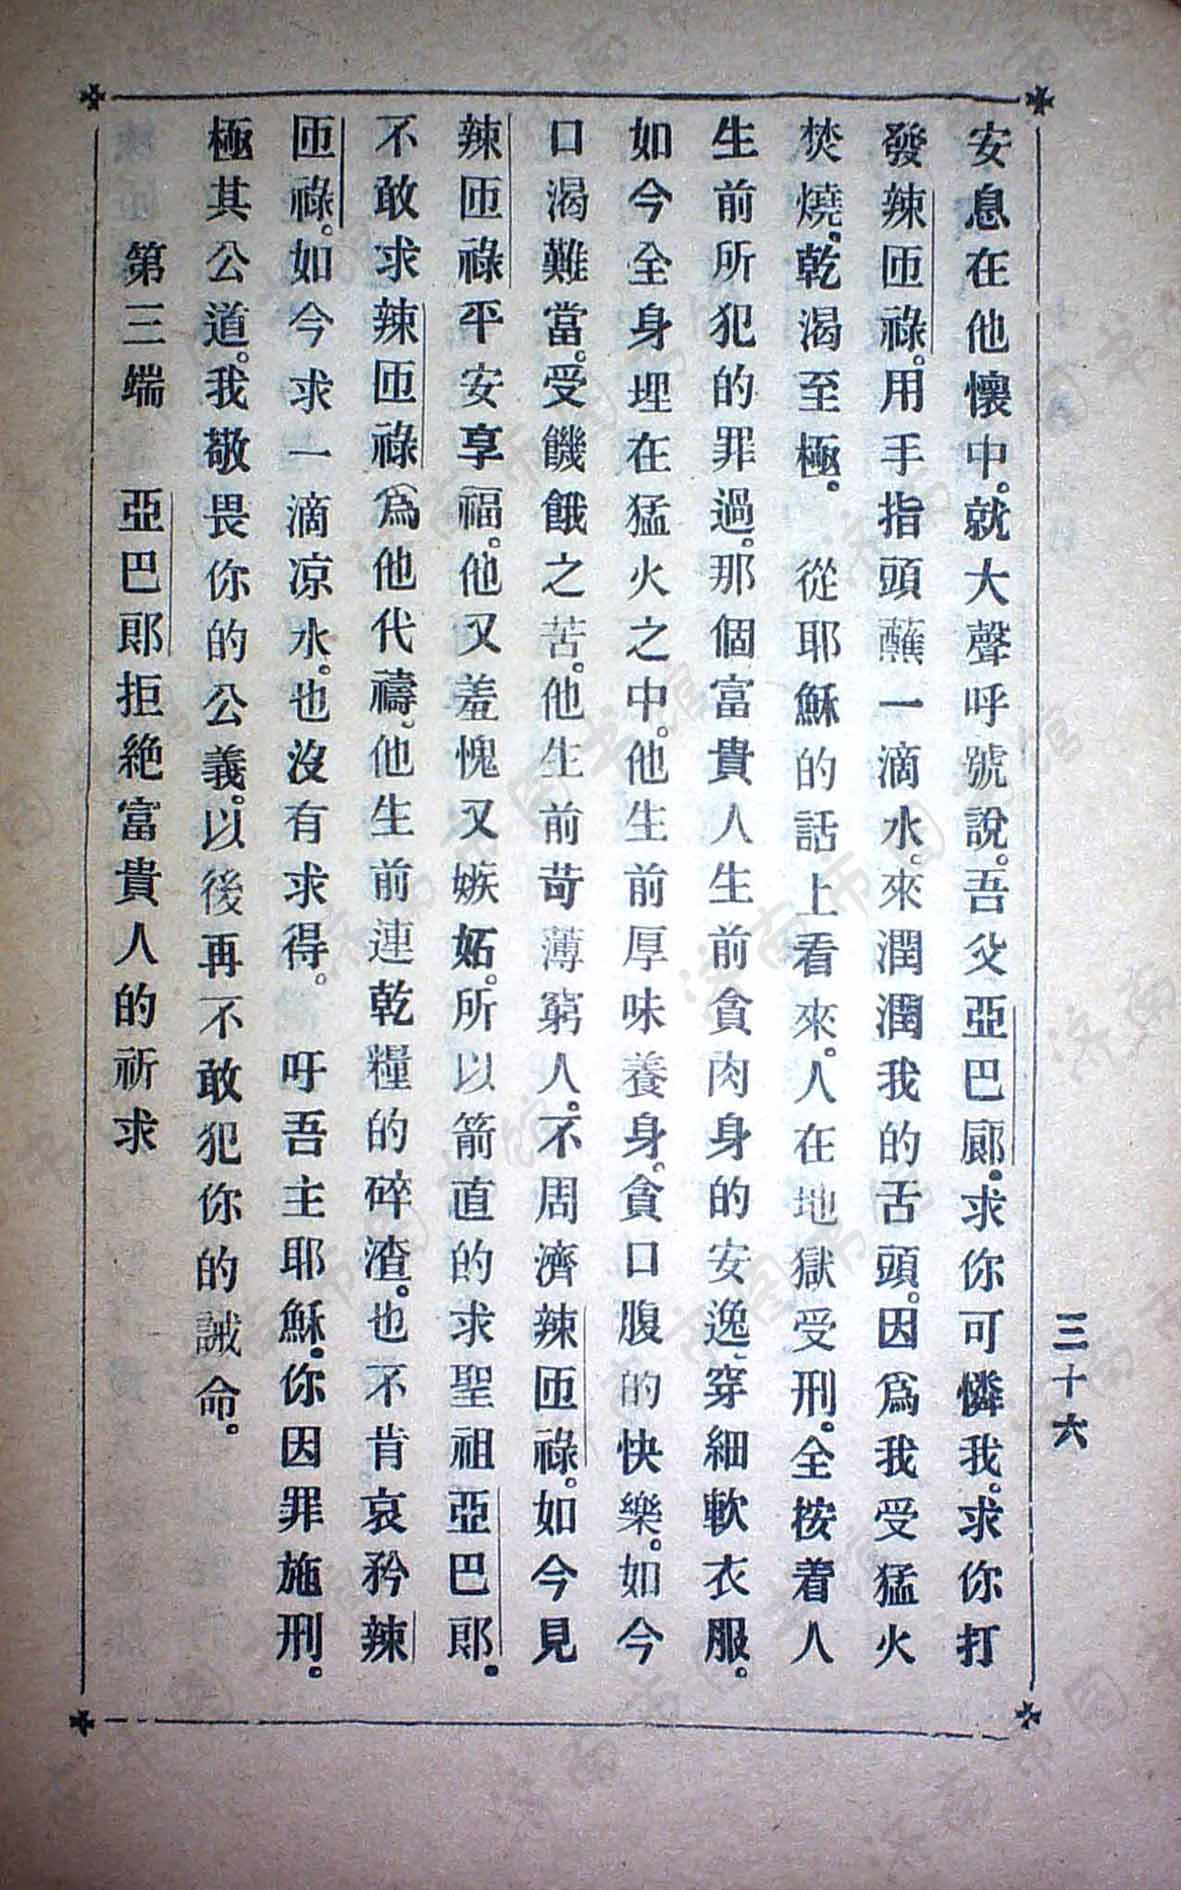 三十六
安息在他懷中。就大聲呼號說。吾父亞巴郎。求你可憐我。求你打
發辣匝祿。用手指頭蘸一滴水。來潤潤我的舌頭。因爲我受猛火
焚燒。乾渴至極。　從耶穌的話上看來。人在地獄受刑。全按着人
生前所犯的罪過。那個富貴人生前貪肉身的安逸。穿細軟衣服。
如今全身埋在猛火之中。他生前厚味養身。貪口腹的快樂。如今
口渴難當。受饑餓之苦。他生前苛薄窮人。不周濟辣匝祿。如今見
辣匝祿平安享福。他又羞愧又嫉妬。所以箭直的求聖祖亞巴郎。
不敢求辣匝祿爲他代禱。他生前連乾糧的碎渣。也不肯哀矜辣
匝祿。如今求一滴凉水。也沒有求得。　吁吾主耶穌。你因罪施刑。
極其公道。我敬畏你的公義。以後再不敢犯你的誡命。
第三端　亞巴郎拒絶富貴人的祈求
济南市图书馆